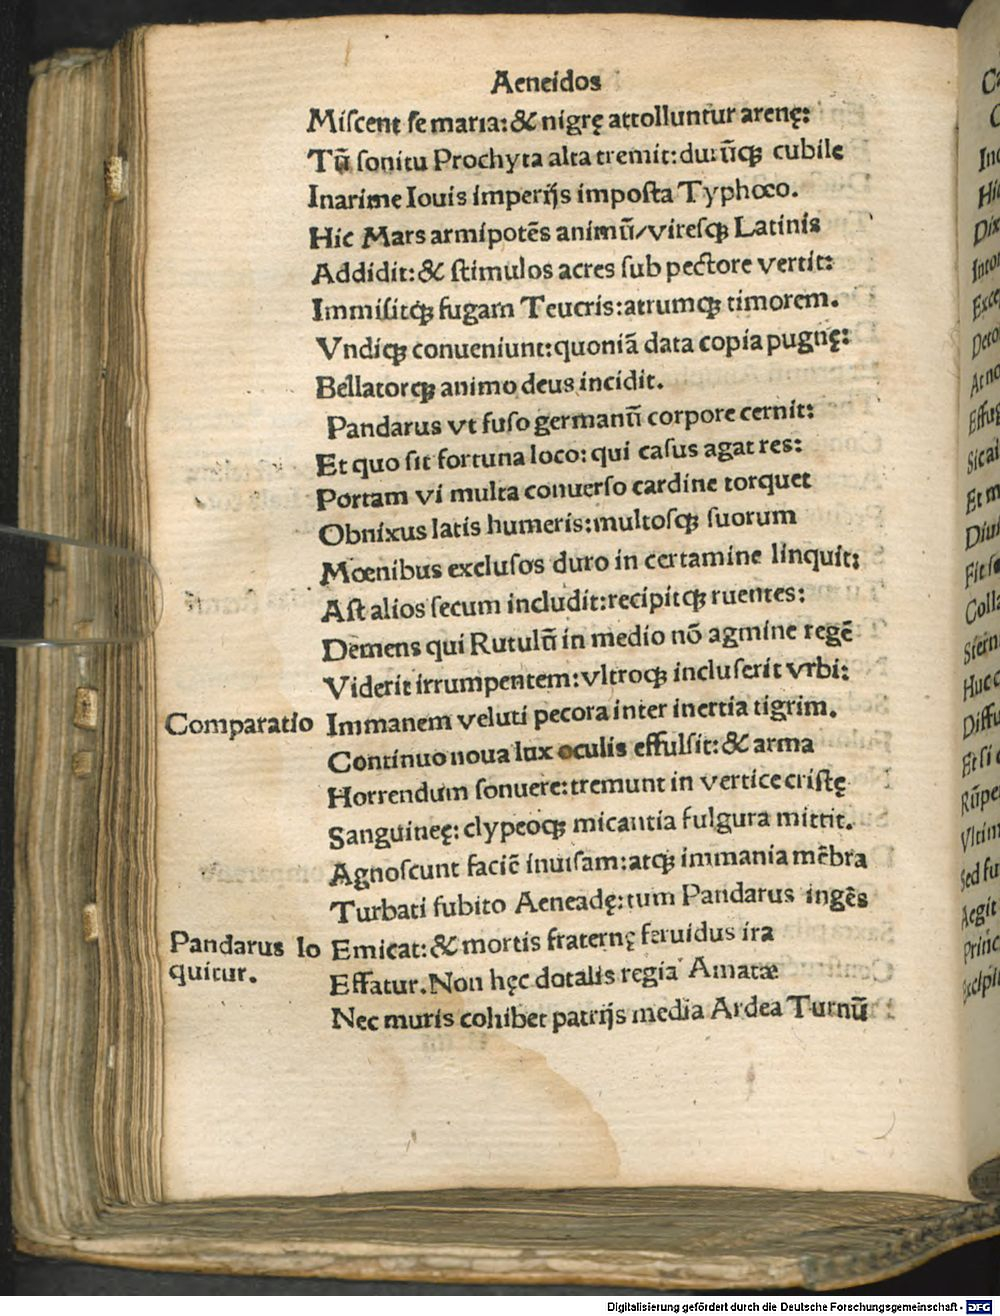 Aeneidos
Miſcent ſe maria: & nigrę attolluntur arenę:
Tū ſonitu Prochyta alta tremit: durūqꝫ cubile
Inarime Iouis imperijs impoſta Typhœo.
Hic Mars armipotēs animū/vireſqꝫ Latinis
Addidit: & ſtimulos acres ſub pectore vertit:
Immiſitqꝫ fugam Teucris: atrumqꝫ timorem.
Vndiqꝫ conueniunt: quoniā data copia pugnę:
Bellatorqꝫ animo deus incidit.
Pandarus vt fuſo germanū corpore cernit:
Et quo ſit fortuna loco: qui caſus agat res:
Portam vi multa conuerſo cardine torquet
Obnixus latis humeris: multoſqꝫ ſuorum
Mœnibus excluſos duro in certamine linquit:
Aſt alios ſecum includit: recipitqꝫ ruentes:
Demens qui Rutulū in medio nō agmine regē
Viderit irrumpentem: vltroqꝫ incluſerit vrbi:
Comparatio Immanem veluti pecora inter inertia tigrim.
Continuo noua lux oculis effulſit: & arma
Horrendum ſonuere: tremunt in vertice criſtę
Sanguineę: clypeoqꝫ micantia fulgura mittit.
Agnoſcunt faciē inuiſam: atqꝫ immania mēbra
Turbati ſubito Aeneadę: tum Pandarus ingēs
Pandarus lo Emicat: & mortis fraternę feruidus ira
quitur. Effatur. Non hęc dotalis regia Amatæ
Nec muris cohibet patrijs media Ardea Turnū
Digitalisierung gefördert durch die Deutsche Forschungsgemeinschaft - DFG